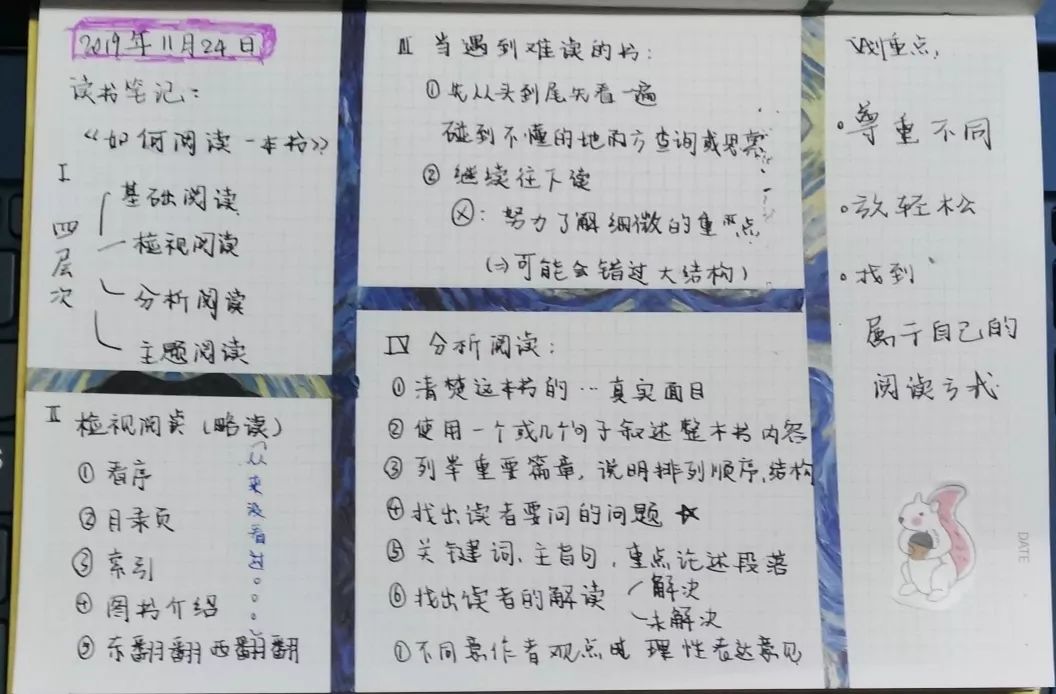 2019年11月24日
读书笔记:
《如何阅读一本书》
I
四层次
基础阅读
检视阅读
分析阅读
主题阅读
II 检视阅读(略读)
①看序
②目录页
③索引
④图书介绍
⑤东翻翻西翻翻
(从来没看过。。。)
III 当遇到难读的书:
①先从头到尾先看一遍
碰到不懂的地方查询或思索
②继续往下读
ⓧ:努力了解细微的重点
(⇒可能会错过大结构)
IV 分析阅读:
①清楚这本书的…真实面目
②使用一个或几个句子叙述整本书内容
③列举重要篇章,说明排列顺序,结构
④找出读者要问的问题 ☆
⑤关键词、主旨句,重点论述段落
⑥找出读者的解读 解决
未解决
⑦不同意作者观点时 理性表达意见
划重点,
•尊重不同
•放轻松
•找到
属于自己的
阅读方式
DATE